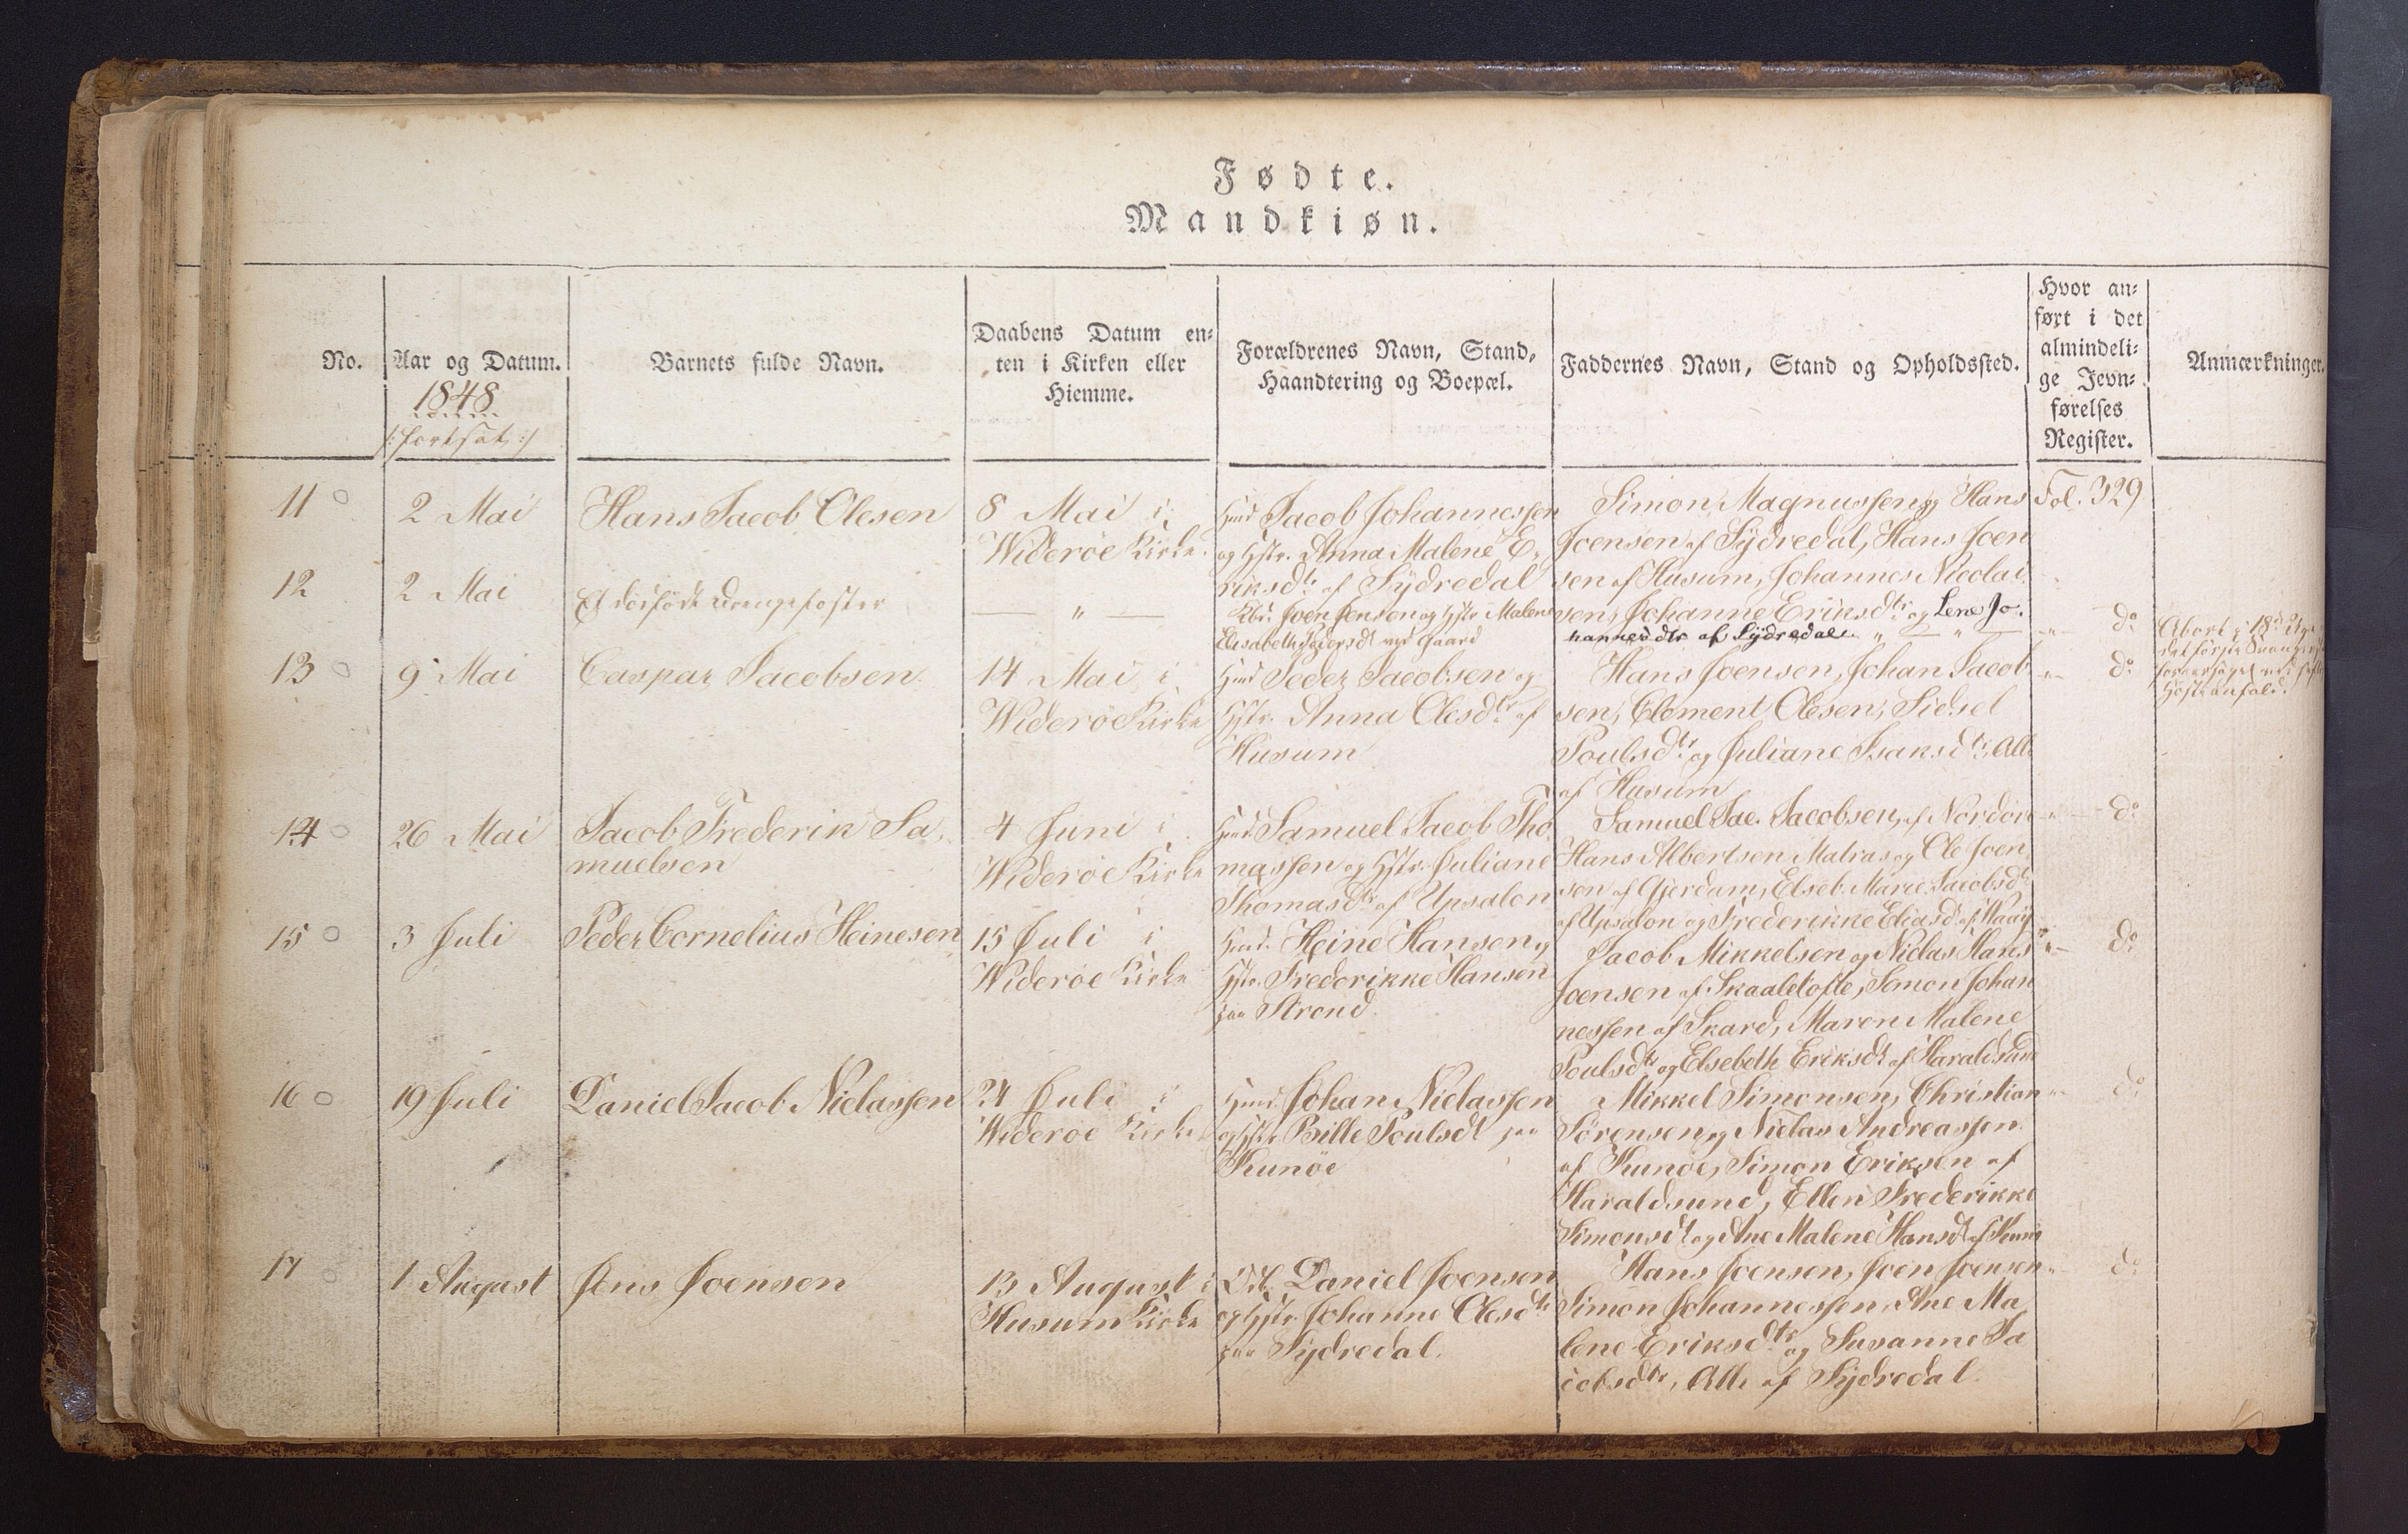 Fødte.
Mandkiøn.
No.
Aar og Datum.
1848
/: fortsat :/
Barnets fulde Navn.
Daabens Datum en-
ten i Kirken eller
Hiemme.
Forældrenes Navn, Stand,
Haandtering og Boepæl.
Faddernes Navn, Stand og Opholdssted.
Hvor an-
ført i det
almindeli-
ge Jevn-
førelses
Register.
Anmærkninger.
11
2 Mai
Hans Jacob Olesen
8 Mai i
Widerøe Kirke
Hmd Jacob Johannessen
og Hstr. Anna Malene E-
riksdtr af Sydredal
Simon Magnussen og Hans
Joensen af Sydredal, Hans Joen
sen af Husum, Johannes Nicolai
sen, Johanne Eriksdtr og Lene Jo-
hannesdtr af Sydredal
Fol. 329
12
2 Mai
Et dødfødt Drengefoster
— " —
Joen Jensen og Hstr Malene
Elisabeth Pedersdt ved Gaard
— " — " —
-"- do
Abort i 18d Uge
det første
Hosteanfald.
13
9 Mai
Caspar Jacobsen
14 Mai i
Widerøe Kirke
Hmd Peder Jacobsen og
Hstr. Anna Olesdtr af
Husum
Hans Joensen, Johan Jacob
sen, Clement Olesen, Sidsel
Poulsdtr og Juliane Isaksdtr, Alle
af Husum
-"- do
14
26 Mai
Jacob Frederik Sa-
muelsen
4 Juni i
Widerøe Kirke
Hmd Samuel Jacob Tho-
massen og Hstr. Juliane
Thomasdtr af Upsalen
Samuel Jac. Jacobsen, af Nordøre
Hans Albertsen Matras og Ole Joen
sen af Gjerdum, Elseb. Marie Jacobsdtr
af Upsalon og Frederikke Eliasdt af Waag
-"- do
15
3 Juli
Peder Cornelius Heinesen
15 Juli i
Widerøe Kirke
Hmd. Heine Hansen og
Hstr. Frederikke Hansen
paa Strond.
Jacob Mikkelsen og Niclas Hans
Joensen af Skaaletofte, Simon Johan
nessen af Skard, Maren Malene
Poulsdtr og Elsebeth Eriksdt af Haraldsund
-"- do
16
19 Juli
Daniel Jacob Niclassen
24 Juli i
Widerøe Kirke
Hmd. Johan Niclassen
og Hstr. Bille Poulsdt paa
Kunøe
Mikkel Simonsen, Christian
Sørensen og Niclas Andreassen
af Kunøe, Simon Eriksen af
Haraldsund, Ellen Frederikke
Simonsdt og Ane Malene Hansdt af Kunø
-"- do
17
1 August
Jens Joensen
13 August i
Husum Kirke
Daniel Joensen
og Hstr. Johanne Olesdtr
paa Sydredal.
Hans Joensen, Joen Joensen
Simon Johannessen, Ane Ma
lene Eriksdtr og Susanne Ja
cobsdtr, Alle af Sydredal.
-"- do